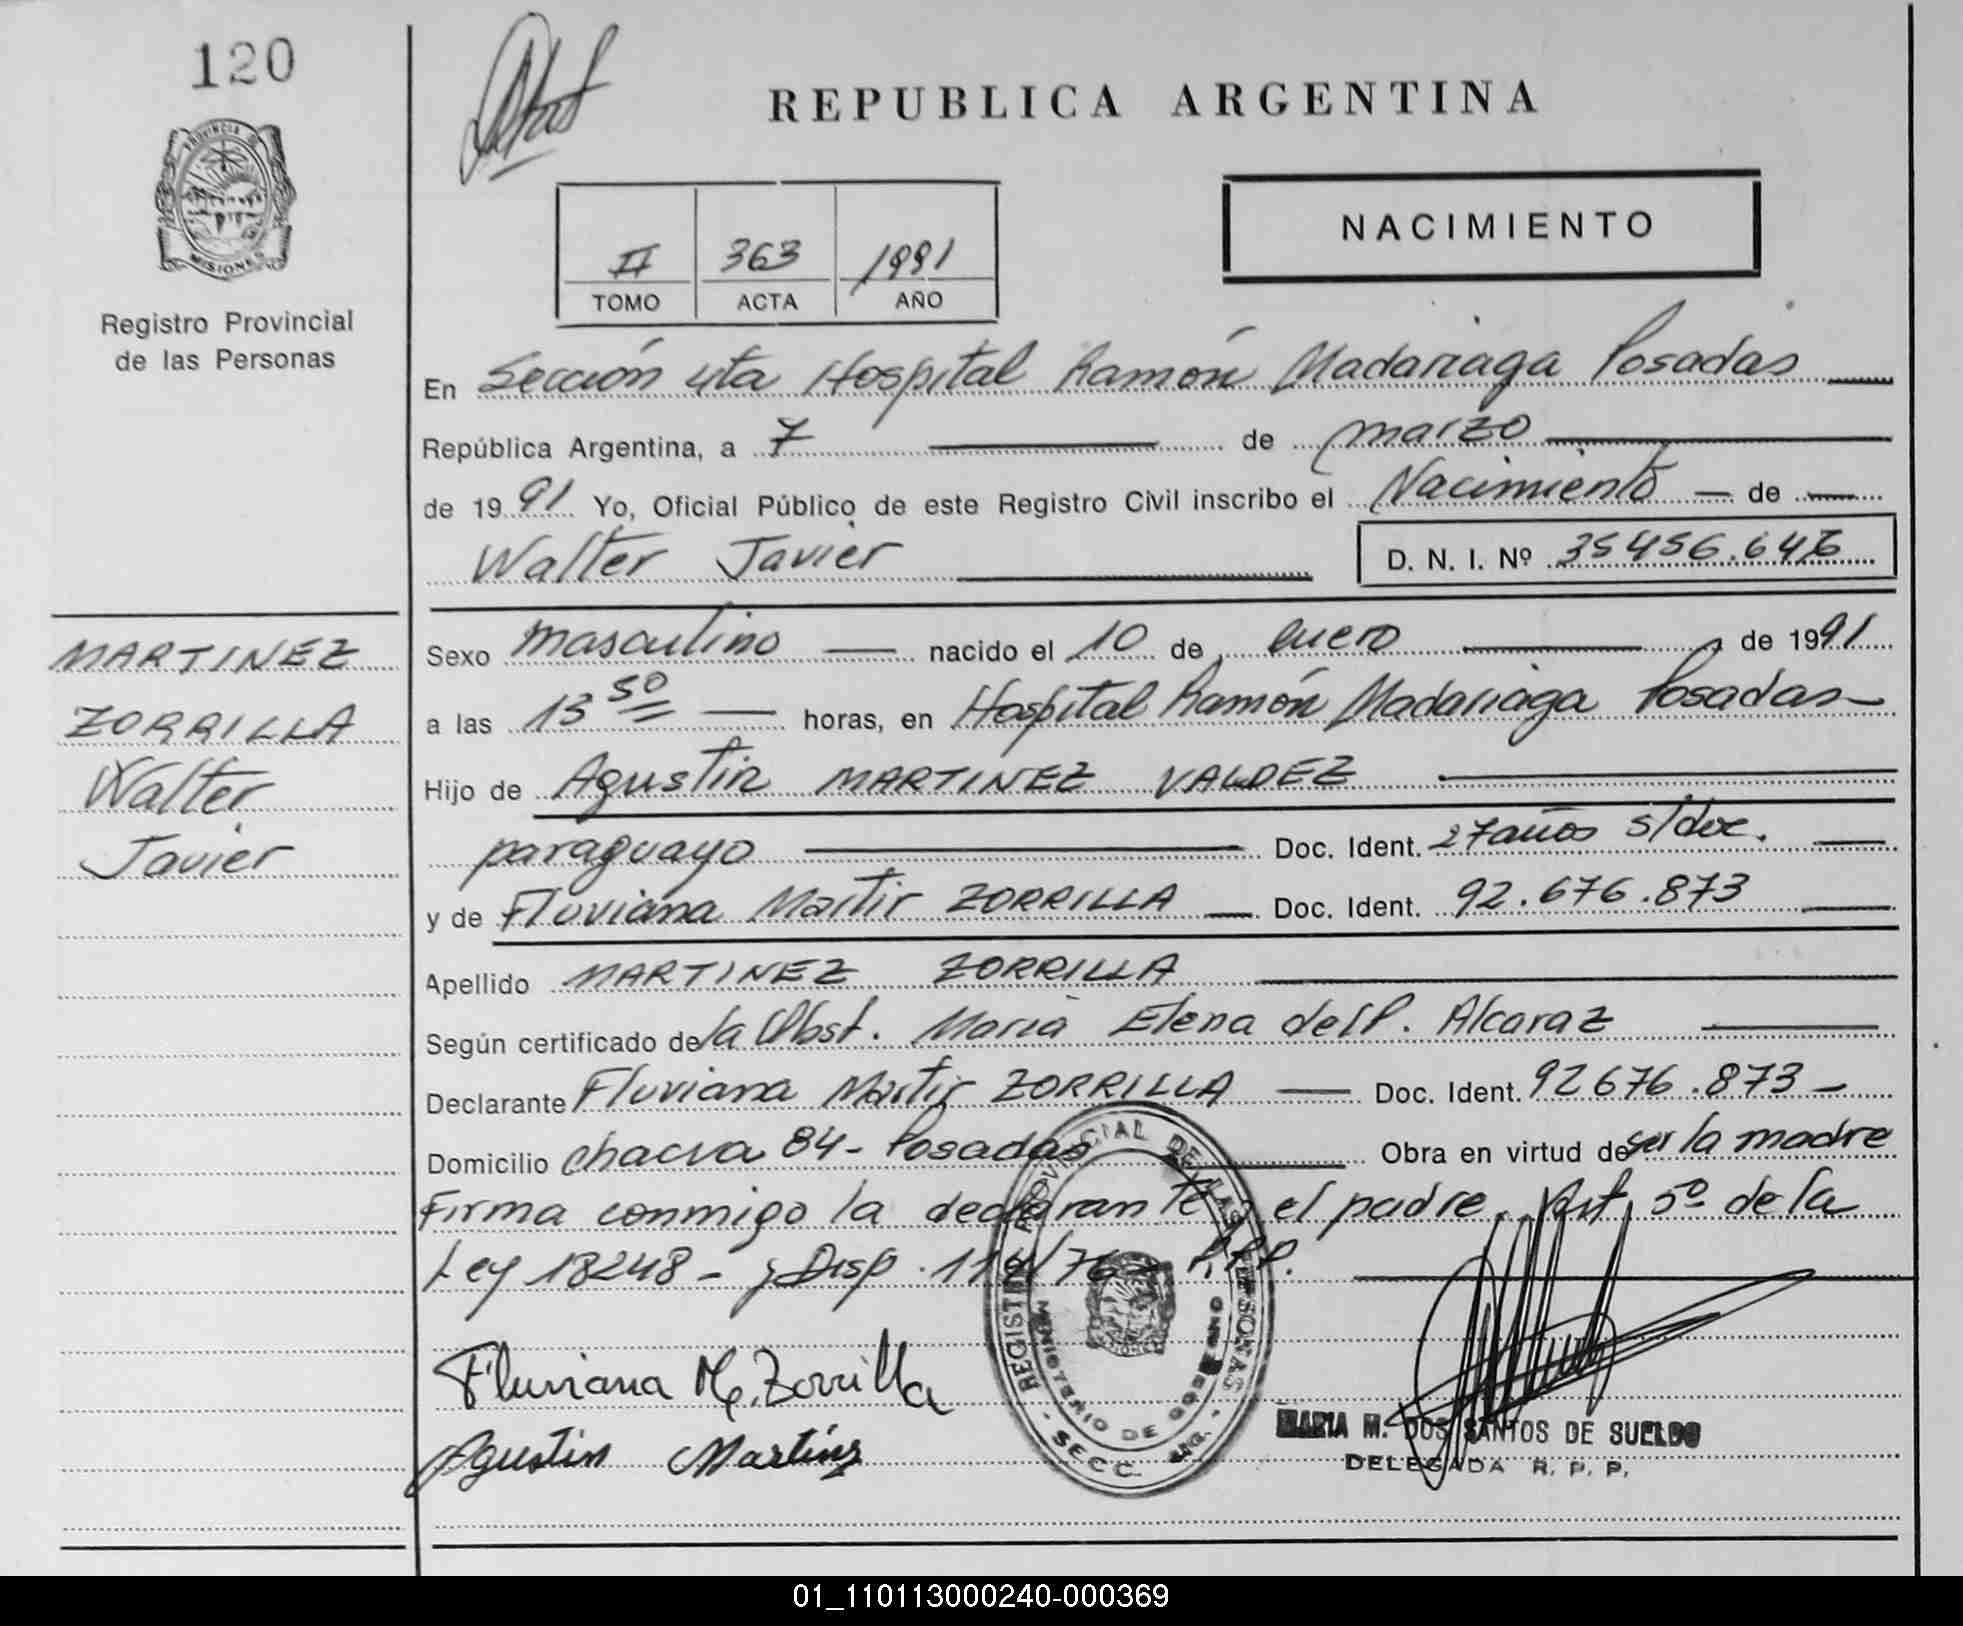 120
REPUBLICA ARGENTINA
PROVINCIA DE MISIONES
Registro Provincial
de las Personas
II 363 1991
TOMO ACTA AÑO
NACIMIENTO
En Sección 4ta Hospital Ramón Madariaga Posadas
República Argentina, a 7 de marzo
de 1991 Yo, Oficial Público de este Registro Civil inscribo el Nacimiento — de —
Walter Javier D. N. I. Nº 35456.646
MARTINEZ
ZORRILLA
Walter
Javier
Sexo masculino — nacido el 10 de enero de 1991
a las 13 50 — horas, en Hospital Ramón Madariaga Posadas
Hijo de Agustin MARTINEZ VALDEZ
paraguayo Doc. Ident. 27 años s/doc.
y de Fluviana Martir ZORRILLA — Doc. Ident. 92.676.873
Apellido MARTINEZ ZORRILLA
Según certificado de la Obst. Maria Elena del P. Alcaraz
Declarante Fluviana Martir ZORRILLA — Doc. Ident. 92676.873 —
Domicilio chacra 84 - Posadas Obra en virtud de ser la madre
Firma conmigo la declarante y el padre. Art. 5º de la
Ley 18248 - y Disp. /76 - R.P.P.
Fluviana M. Zorrilla
Agustin Martinz
REGISTRO PROVINCIAL DE LAS PERSONAS
MINISTERIO DE GOBIERNO
SECC.
MARIA M. DOS SANTOS DE SUELDO
DELEGADA R. P. P.
01_110113000240-000369